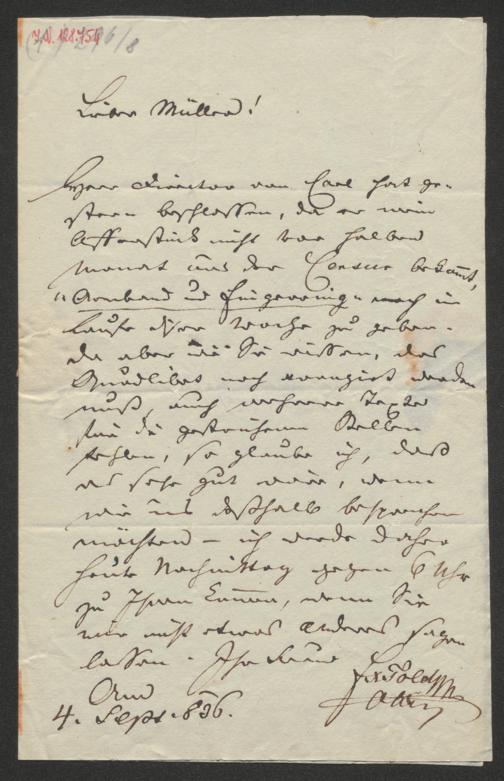 I.N. 128.754
Lieber Müller!
Herr Director von Carl hat ge-
stern beschlossen, da er mein
Affenstück nicht vor halben
Monat aus der Censur bekommt,
"Armband und
noch im
Laufe dieser Woche zu geben.
Da aber wie Sie wissen, das
Quodlibet noch arrangirt werden
muß, auch mehrere Texte
für die gestrichenen Stellen
fehlen, so glaube ich, daß
es sehr gut wäre, wenn
wir uns deßhalb besprechen
möchten – ich werde daher
heute Nachmittag gegen 6 Uhr
zu Ihnen kommen, wenn Sie
mir nicht etwas anderes sagen
lassen. Ihr Freund
Am
4. Sept. 836.